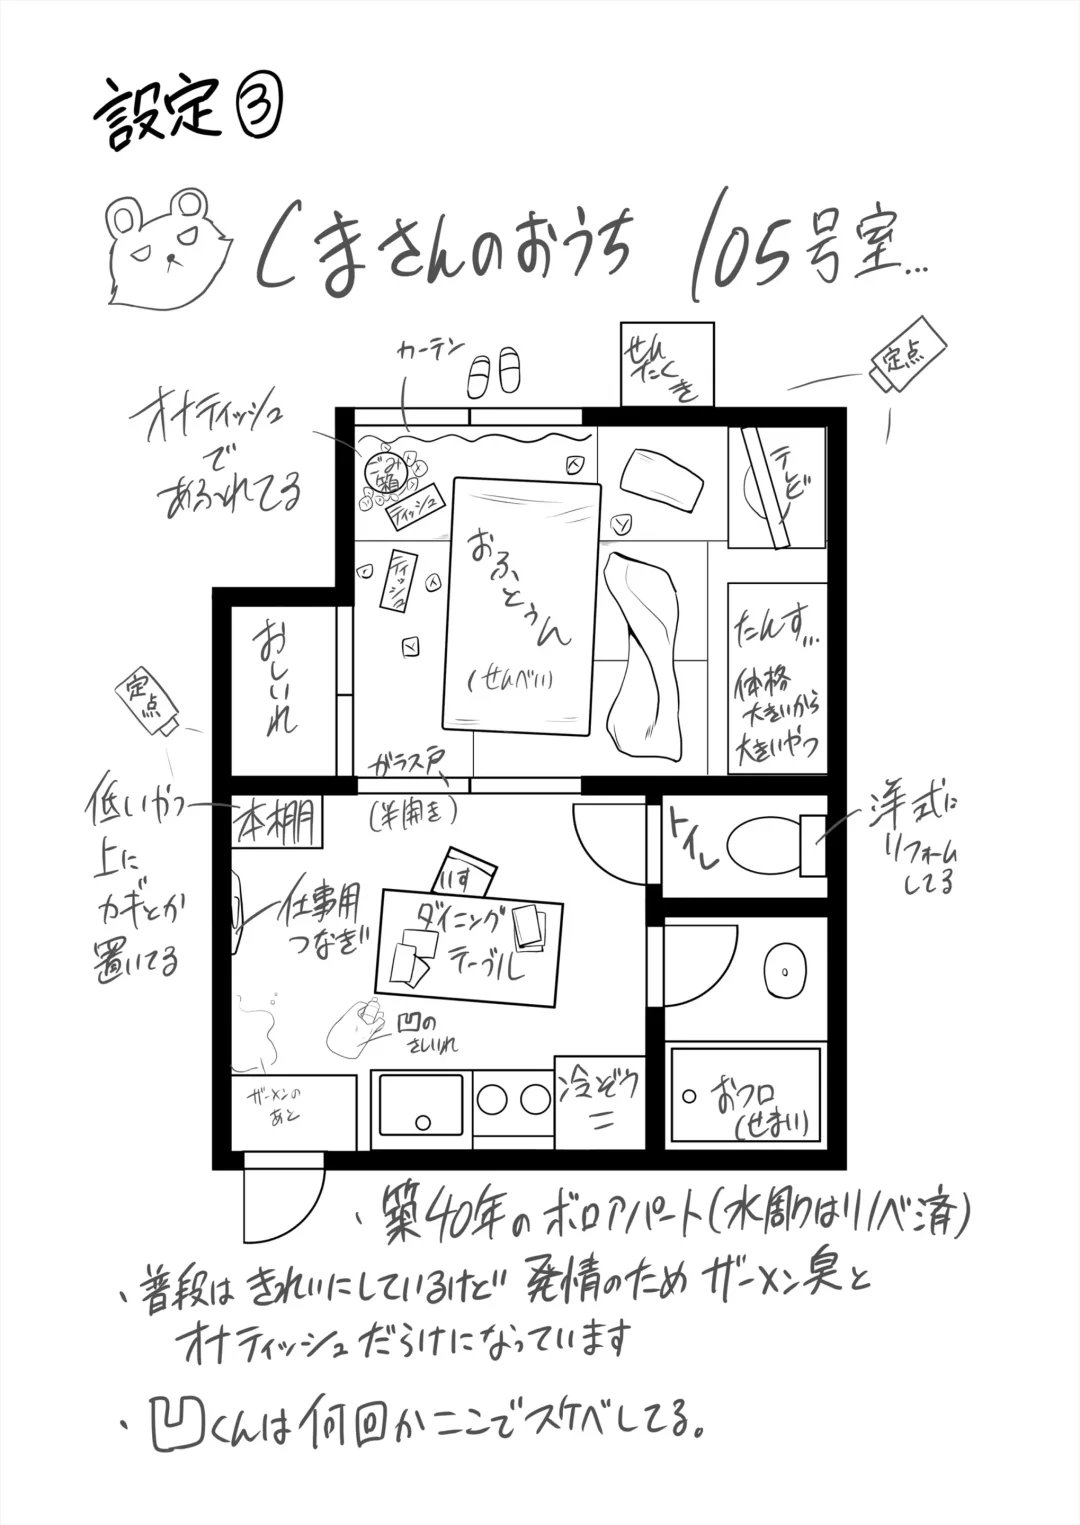 設定③
くまさんのおうち 105号室...
カーテン
せん
たく
き
定点
オナティッシュ
で
あふれてる
ごみ
箱
ティッシュ
ティッシュ
テレビ
おふとぅん
(せんべい)
おしいれ
たんす...
体格
大きいから
大きいやつ
定点
ガラス戸
(半開き)
低いやつ
上に
カギとか
置いてる
本棚
トイレ
洋式に
リフォーム
してる
仕事用
つなぎ
いす
ダイニング
テーブル
凹の
さしいれ
ザーメンの
あと
冷ぞウ
=
おフロ
(せまい)
・築40年のボロアパート(水周りはリノベ済)
・普段はきれいにしているけど発情のためザーメン臭と
オナティッシュだらけになっています
・凹くんは何回かここでスケベしてる。